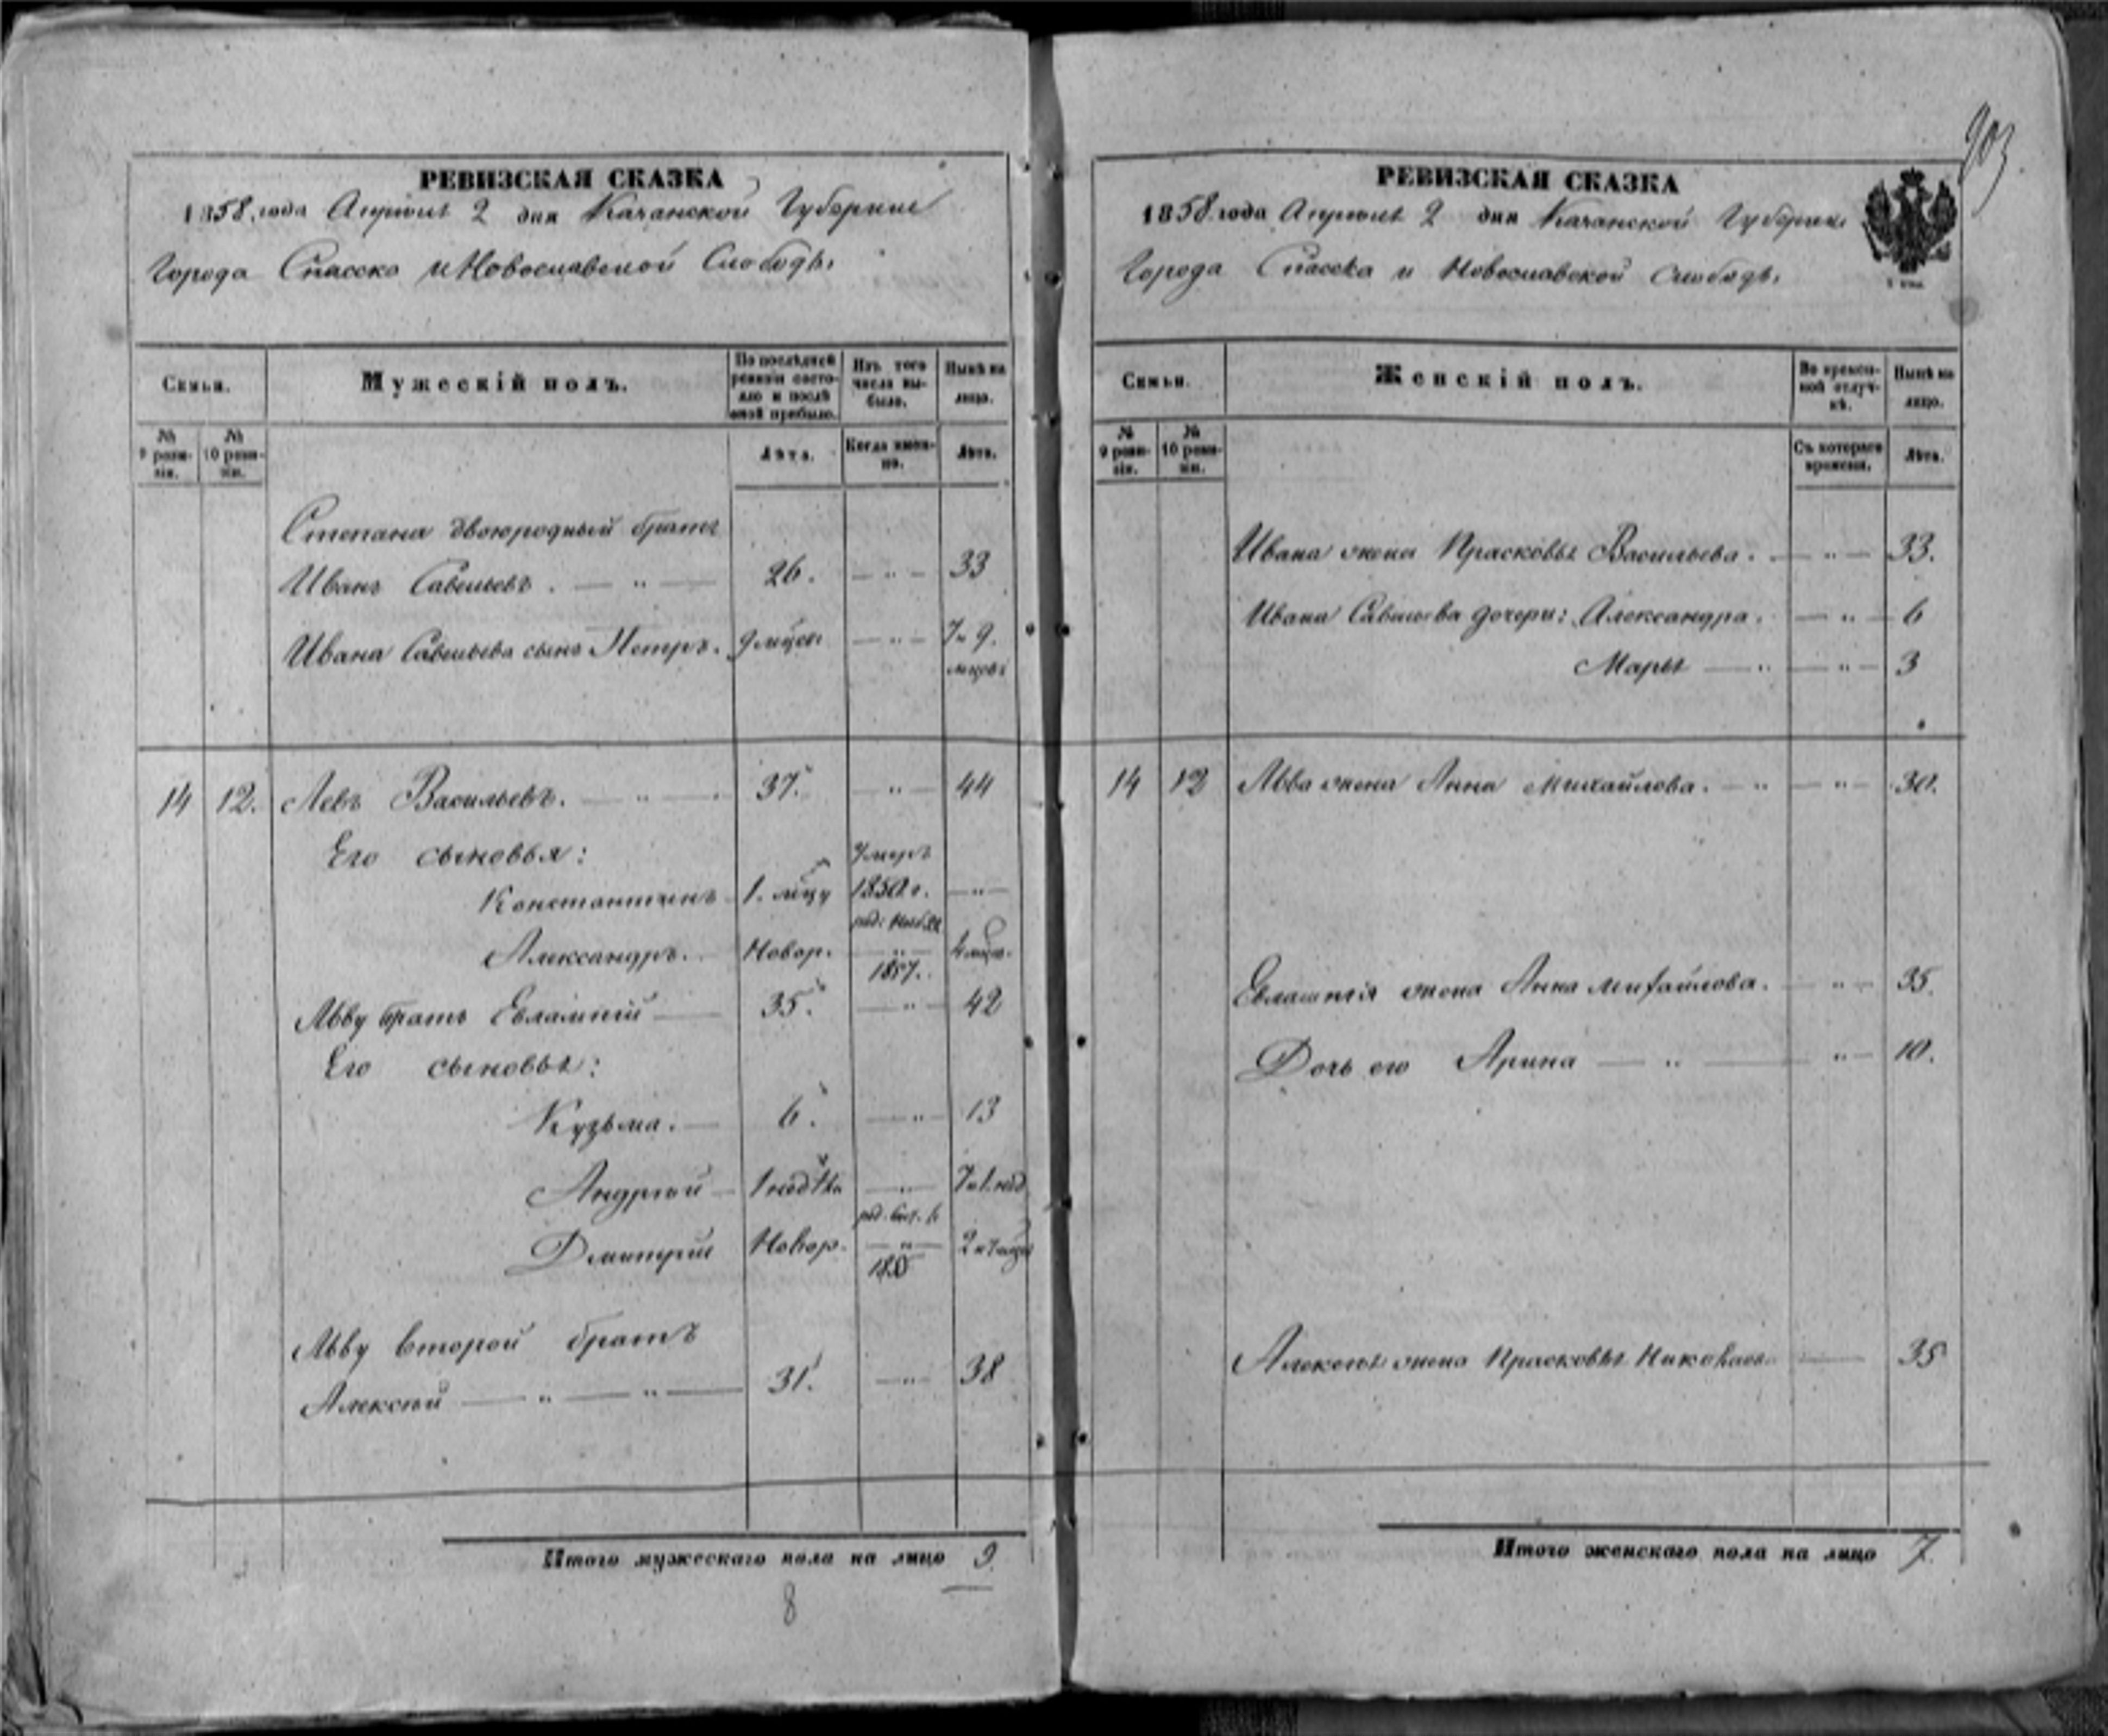 РЕВИЗСКАЯ СКАЗКА
1858 года Апреля 2 дня Казанской Губернии
Города Спасска и Новоспавской Слободы
Семьи.
Мужескій полъ.
По послѣдней ревизіи состояло и послѣ оной прибыло.
Изъ того числа выбыло.
Нынѣ на лицо.
№ 9 ревизіи.
№ 10 ревизіи.
Лѣта.
Когда именно.
Лѣта.
Степана двоюродный братъ
Иванъ Савельевъ. — " — 26. — " — 33
Ивана Савельева сынъ Петръ. 9 мцовъ — " — 7 и 9. мцовъ
14 12. Левъ Васильевъ. — " — 37. " 44
Его сыновья:
Константинъ 1. мцу Умеръ 1850 г. — " —
Александръ. Новор. род: Нояб. — " — 1857. 4 мцов.
Льву братъ Евлампій — 35. — " — 42
Его сыновья:
Кузьма. — 6. — " — 13
Андрей — 1 нед. — " — 7 и 1. нед
Дмитрий Новор. — " — 2 и 7 мцов
Льву второй братъ
Алексѣй — " — " — 31. — " — 38
Итого мужескаго пола на лицо 9
8
903
РЕВИЗСКАЯ СКАЗКА
1858 года Апреля 2 дня Казанской Губерніи
Города Спасска и Новоспавской Слободы
Семьи.
Женскій полъ.
Во временной отлучкѣ.
Нынѣ на лицо.
№ 9 ревизіи.
№ 10 ревизіи.
Съ котораго времени.
Лѣта.
Ивана жена Прасковья Васильева. — " — 33.
Ивана Савельева дочери: Александра. — " — 6
Марья — " — " — 3
14 12 Льва жена Анна Михайлова. — " — " — 30.
Евлампія жена Анна Михайлова. — " — 35.
Дочь его Арина — " — " — 10.
Алексѣя жена Прасковья Николаева — 35
Итого женскаго пола на лицо 7.